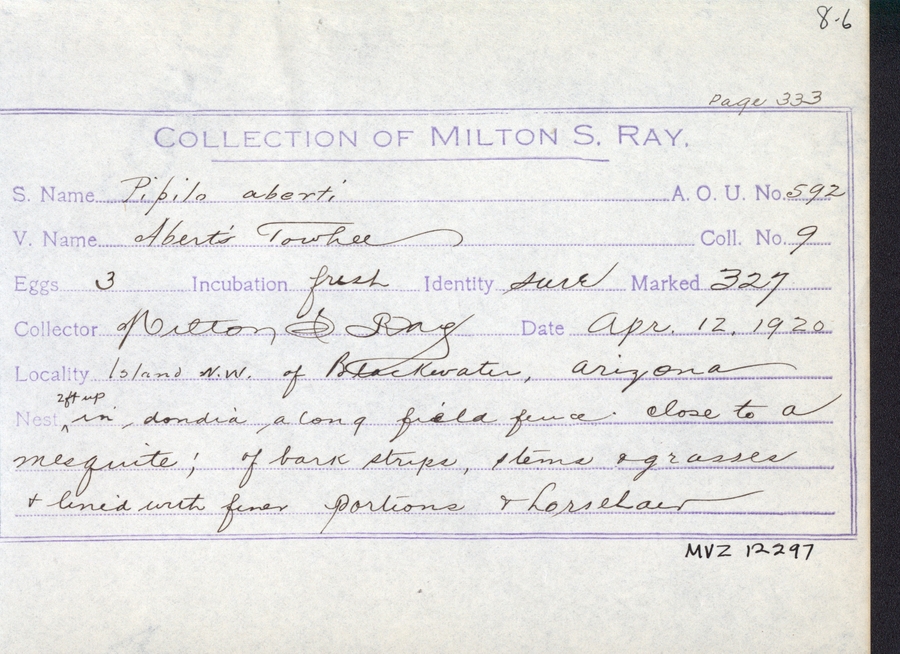 8-6
Page 333
COLLECTION OF MILTON S. RAY.
S. Name Pipilo aberti A. O. U. No. 592
V. Name Abert's Towhee Coll. No. 9
Eggs 3 Incubation fresh Identity sure Marked 327
Collector Milton S Ray Date Apr. 12, 1920
Locality Island N.W. of Blackwater, Arizona
2ft up
Nest in dondia along field fence close to a
mesquite; of bark strips, stems & grasses
& lined with finer portions & horsehair
MVZ 12297